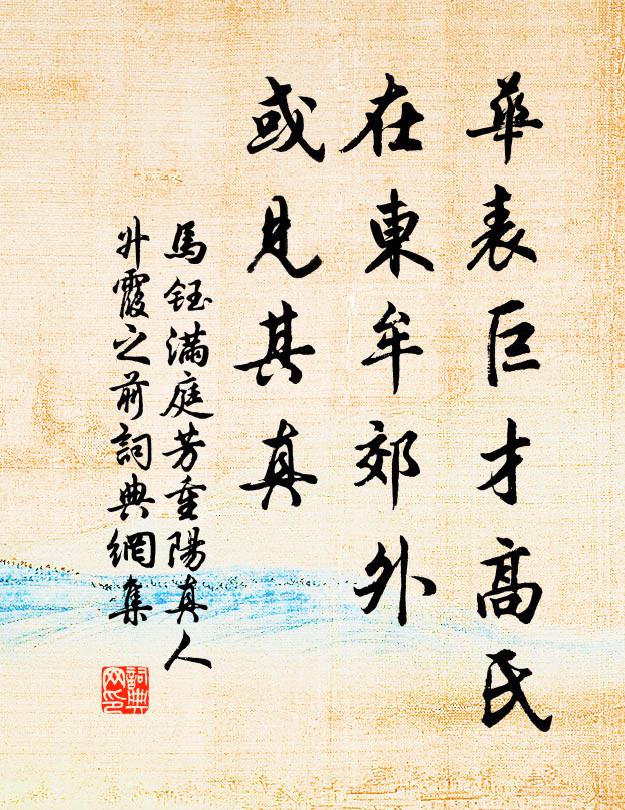 華表巨才高氏
在東牟郊外
或見其真
馬鈺滿庭芳重陽真人
升霞之前詞典網集
詞典网印